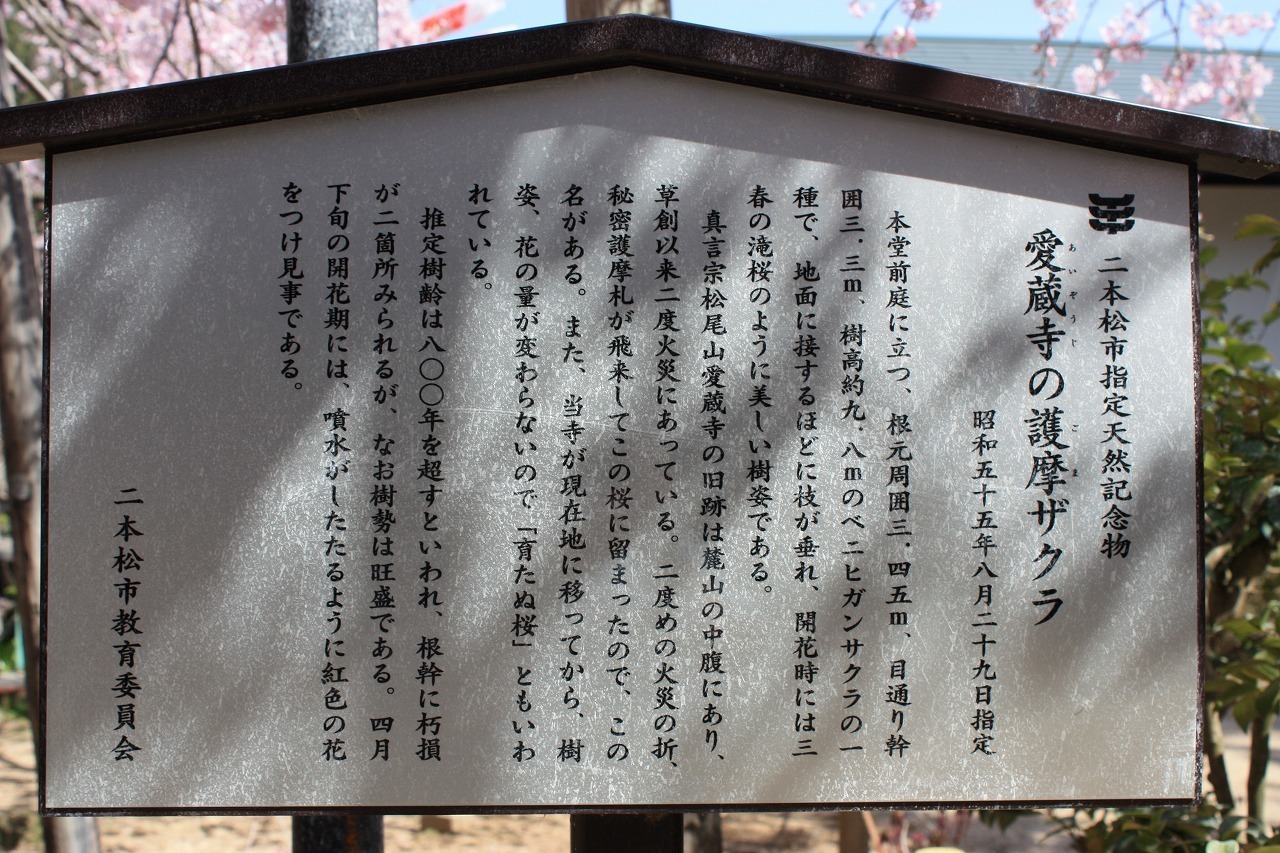 二本松市指定天然記念物
愛蔵寺の護摩ザクラ
あいぞうじ
ごま
昭和五十五年八月二十九日指定
本堂前庭に立つ、根元周囲三.四五m、目通り幹
囲三.三m、樹高約九.八mのベニヒガンサクラの一
種で、地面に接するほどに枝が垂れ、開花時には三
春の滝桜のように美しい樹姿である。
真言宗松尾山愛蔵寺の旧跡は麓山の中腹にあり、
草創以来二度火災にあっている。二度めの火災の折、
秘密護摩札が飛来してこの桜に留まったので、この
名がある。また、当寺が現在地に移ってから、樹
姿、花の量が変わらないので「育たぬ桜」ともいわ
れている。
推定樹齢は八〇〇年を超すといわれ、根幹に朽損
が二箇所みられるが、なお樹勢は旺盛である。四月
下旬の開花期には、噴水がしたたるように紅色の花
をつけ見事である。
二本松市教育委員会